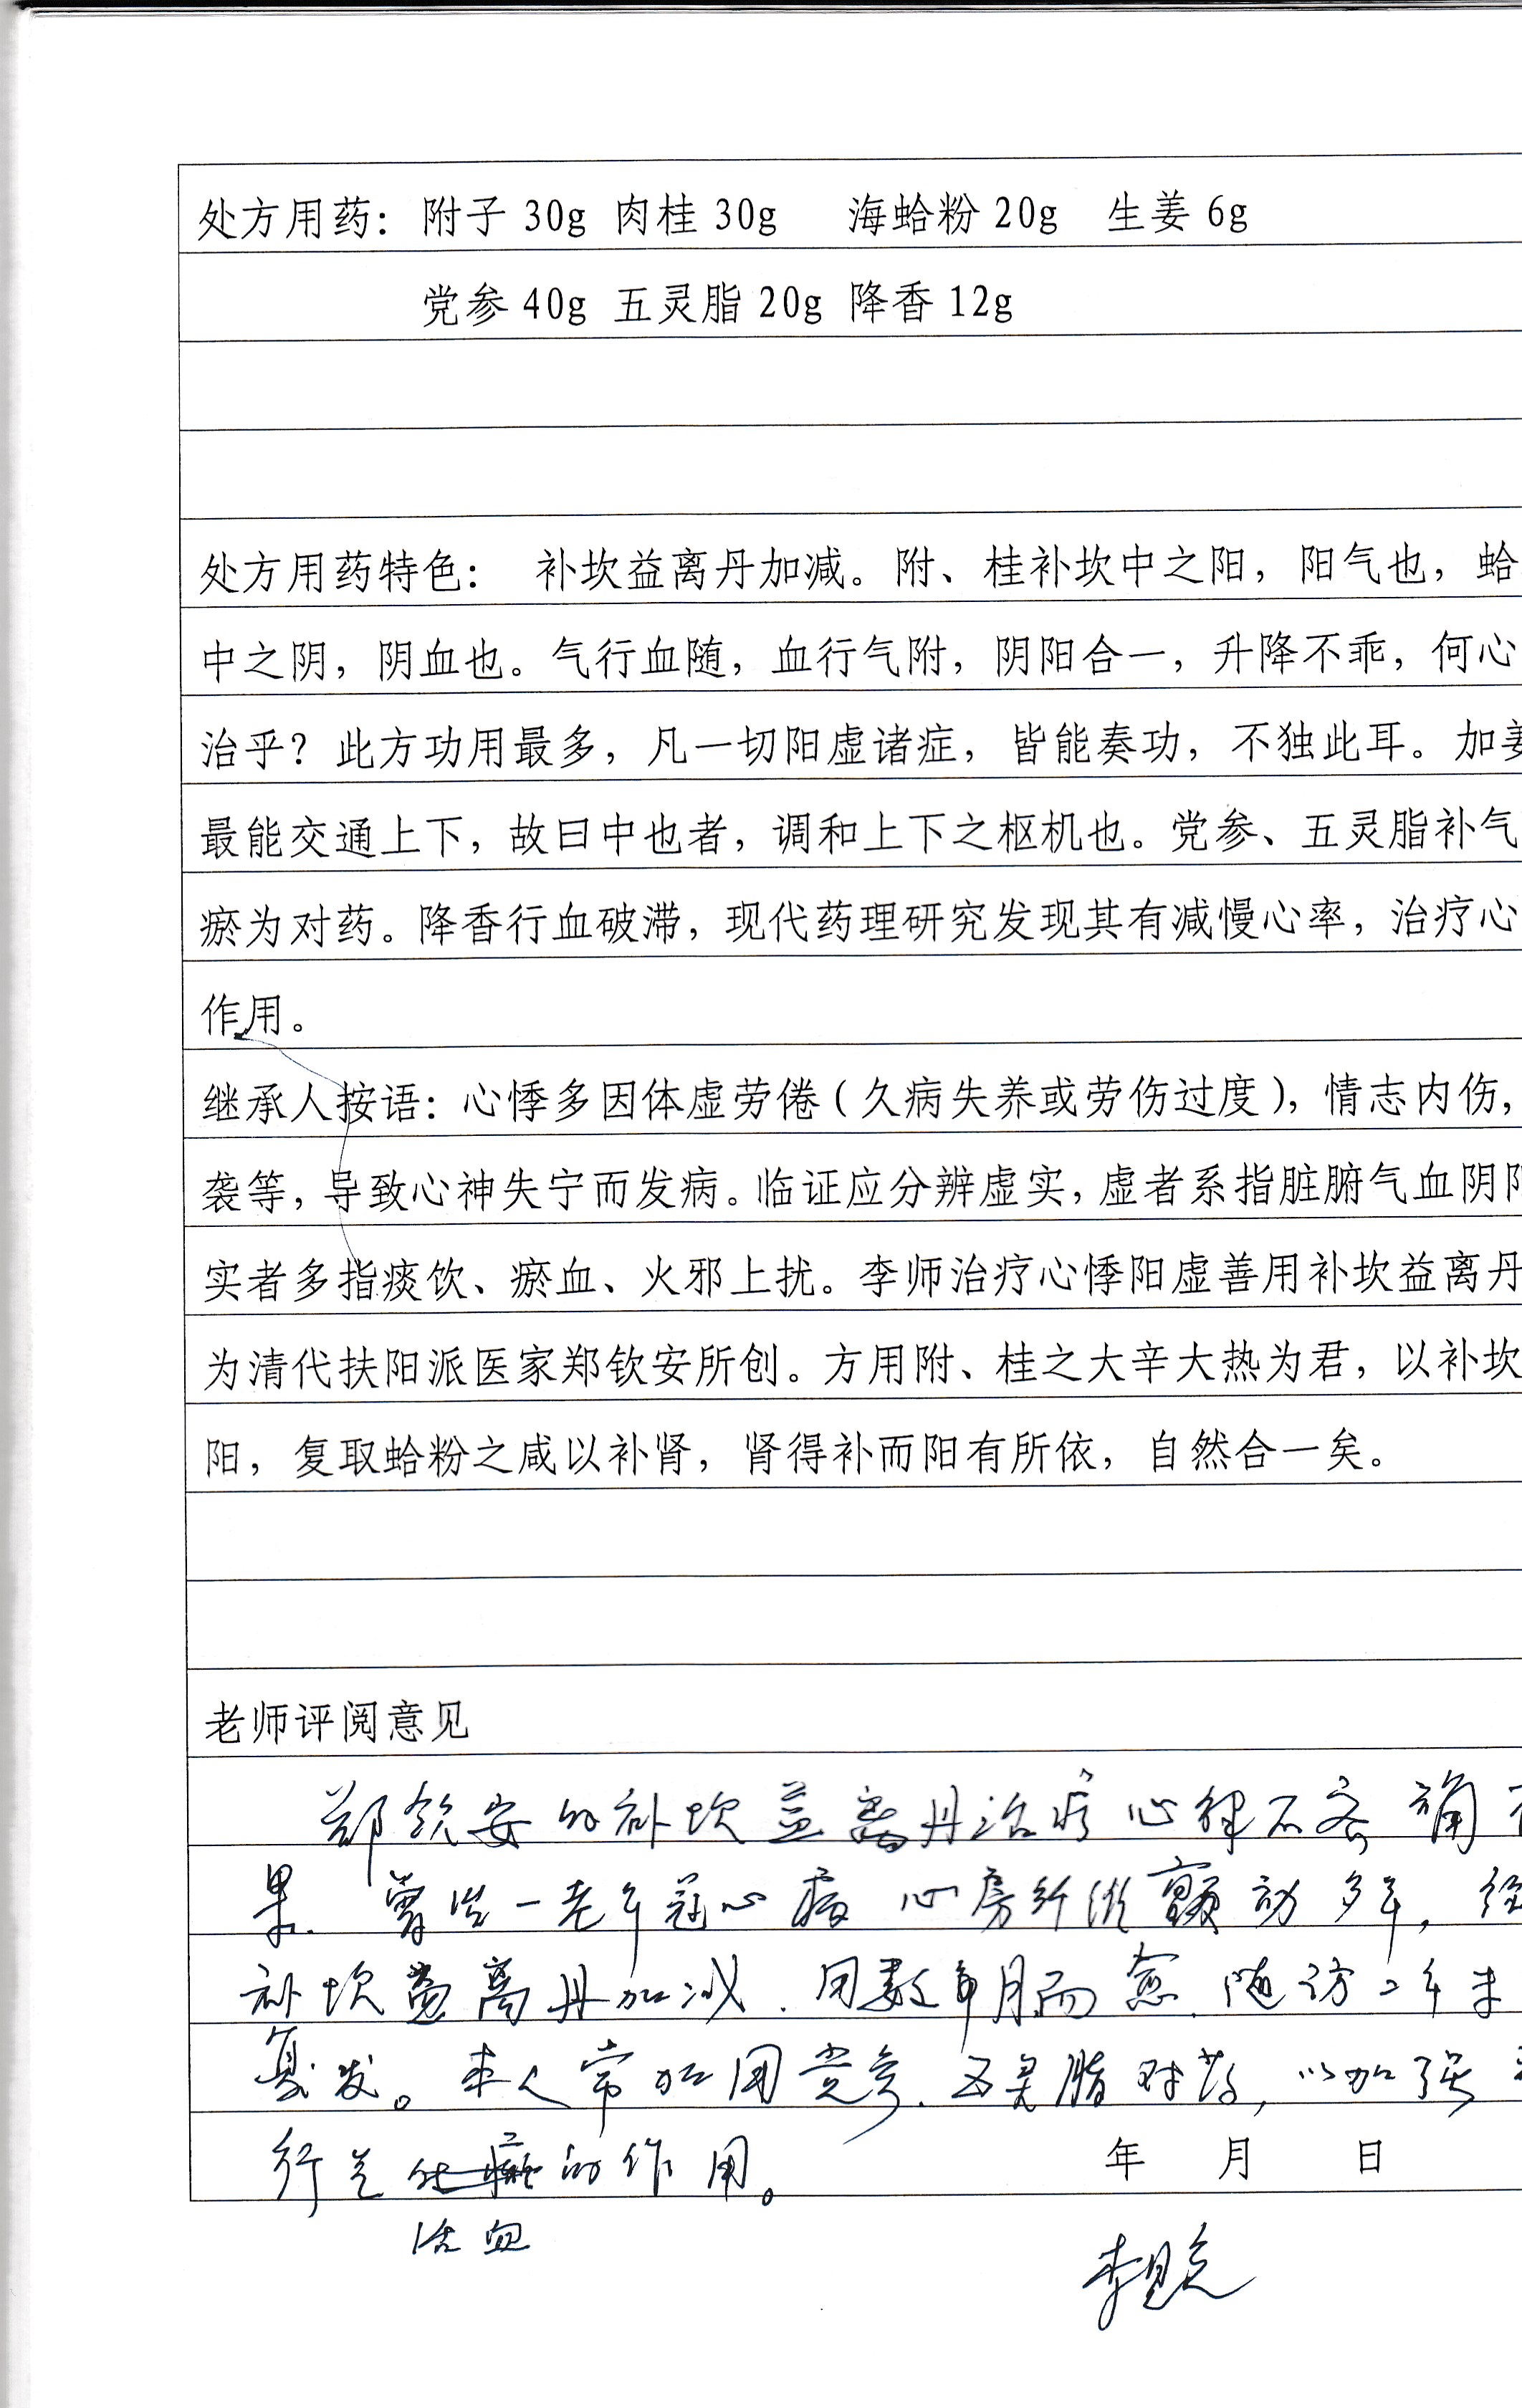 处方用药：附子 30g 肉桂 30g 海蛤粉 20g 生姜 6g
党参 40g 五灵脂 20g 降香 12g
处方用药特色： 补坎益离丹加减。附、桂补坎中之阳，阳气也，蛤
中之阴，阴血也。气行血随，血行气附，阴阳合一，升降不乖，何心
治乎？此方功用最多，凡一切阳虚诸症，皆能奏功，不独此耳。加姜
最能交通上下，故曰中也者，调和上下之枢机也。党参、五灵脂补气
瘀为对药。降香行血破滞，现代药理研究发现其有减慢心率，治疗心
作用。
继承人按语：心悸多因体虚劳倦（久病失养或劳伤过度），情志内伤，
袭等，导致心神失宁而发病。临证应分辨虚实，虚者系指脏腑气血阴阳
实者多指痰饮、瘀血、火邪上扰。李师治疗心悸阳虚善用补坎益离丹
为清代扶阳派医家郑钦安所创。方用附、桂之大辛大热为君，以补坎
阳，复取蛤粉之咸以补肾，肾得补而阳有所依，自然合一矣。
老师评阅意见
郑钦安的补坎益离丹治疗心律不齐确有
果. 曾治一老年冠心病 心房纤维颤动多年，经
补坎益离丹加减. 用数月而愈. 随访二年未
复发。本人常加用党参. 五灵脂对药，以加强
行气 的作用。
年 月 日
活血